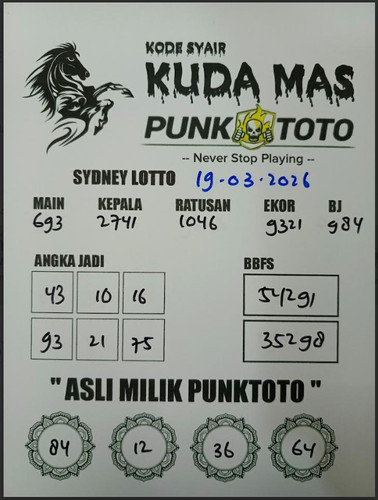 KODE SYAIR
KUDA MAS
PUNK TOTO
-- Never Stop Playing --
SYDNEY LOTTO 19-03-2026
MAIN KEPALA RATUSAN EKOR BJ
693 2741 1046 9321 984
ANGKA JADI BBFS
43 10 16 54291
93 21 75 35298
" ASLI MILIK PUNKTOTO "
84 12 36 64